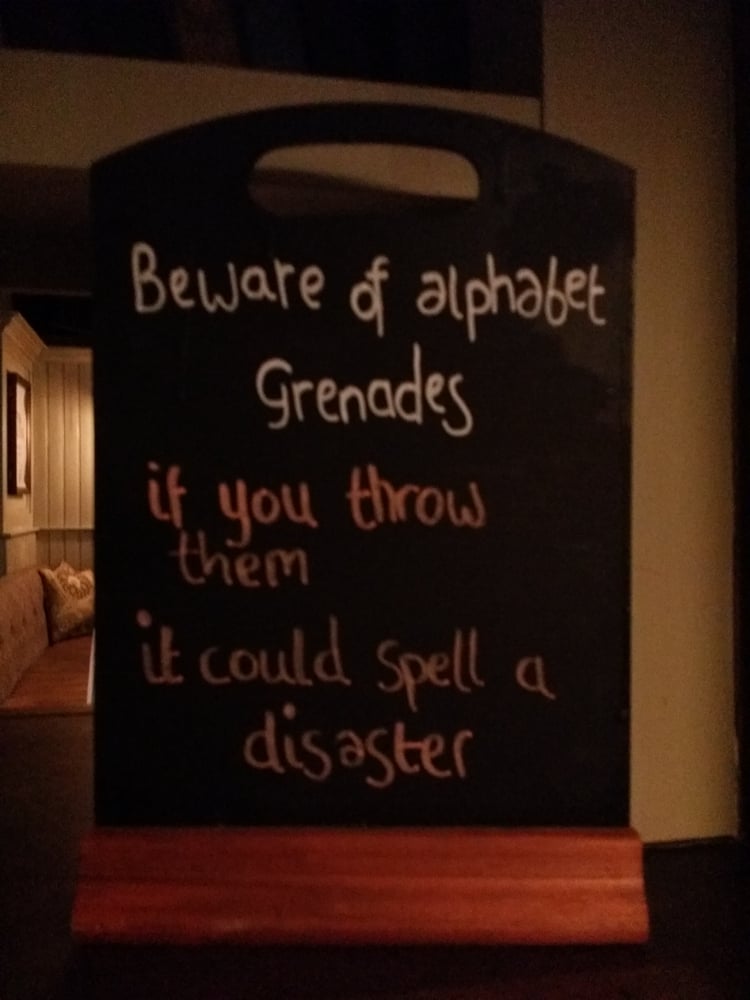 Beware of alphabet
Grenades
if you throw
them
it could spell a
disaster